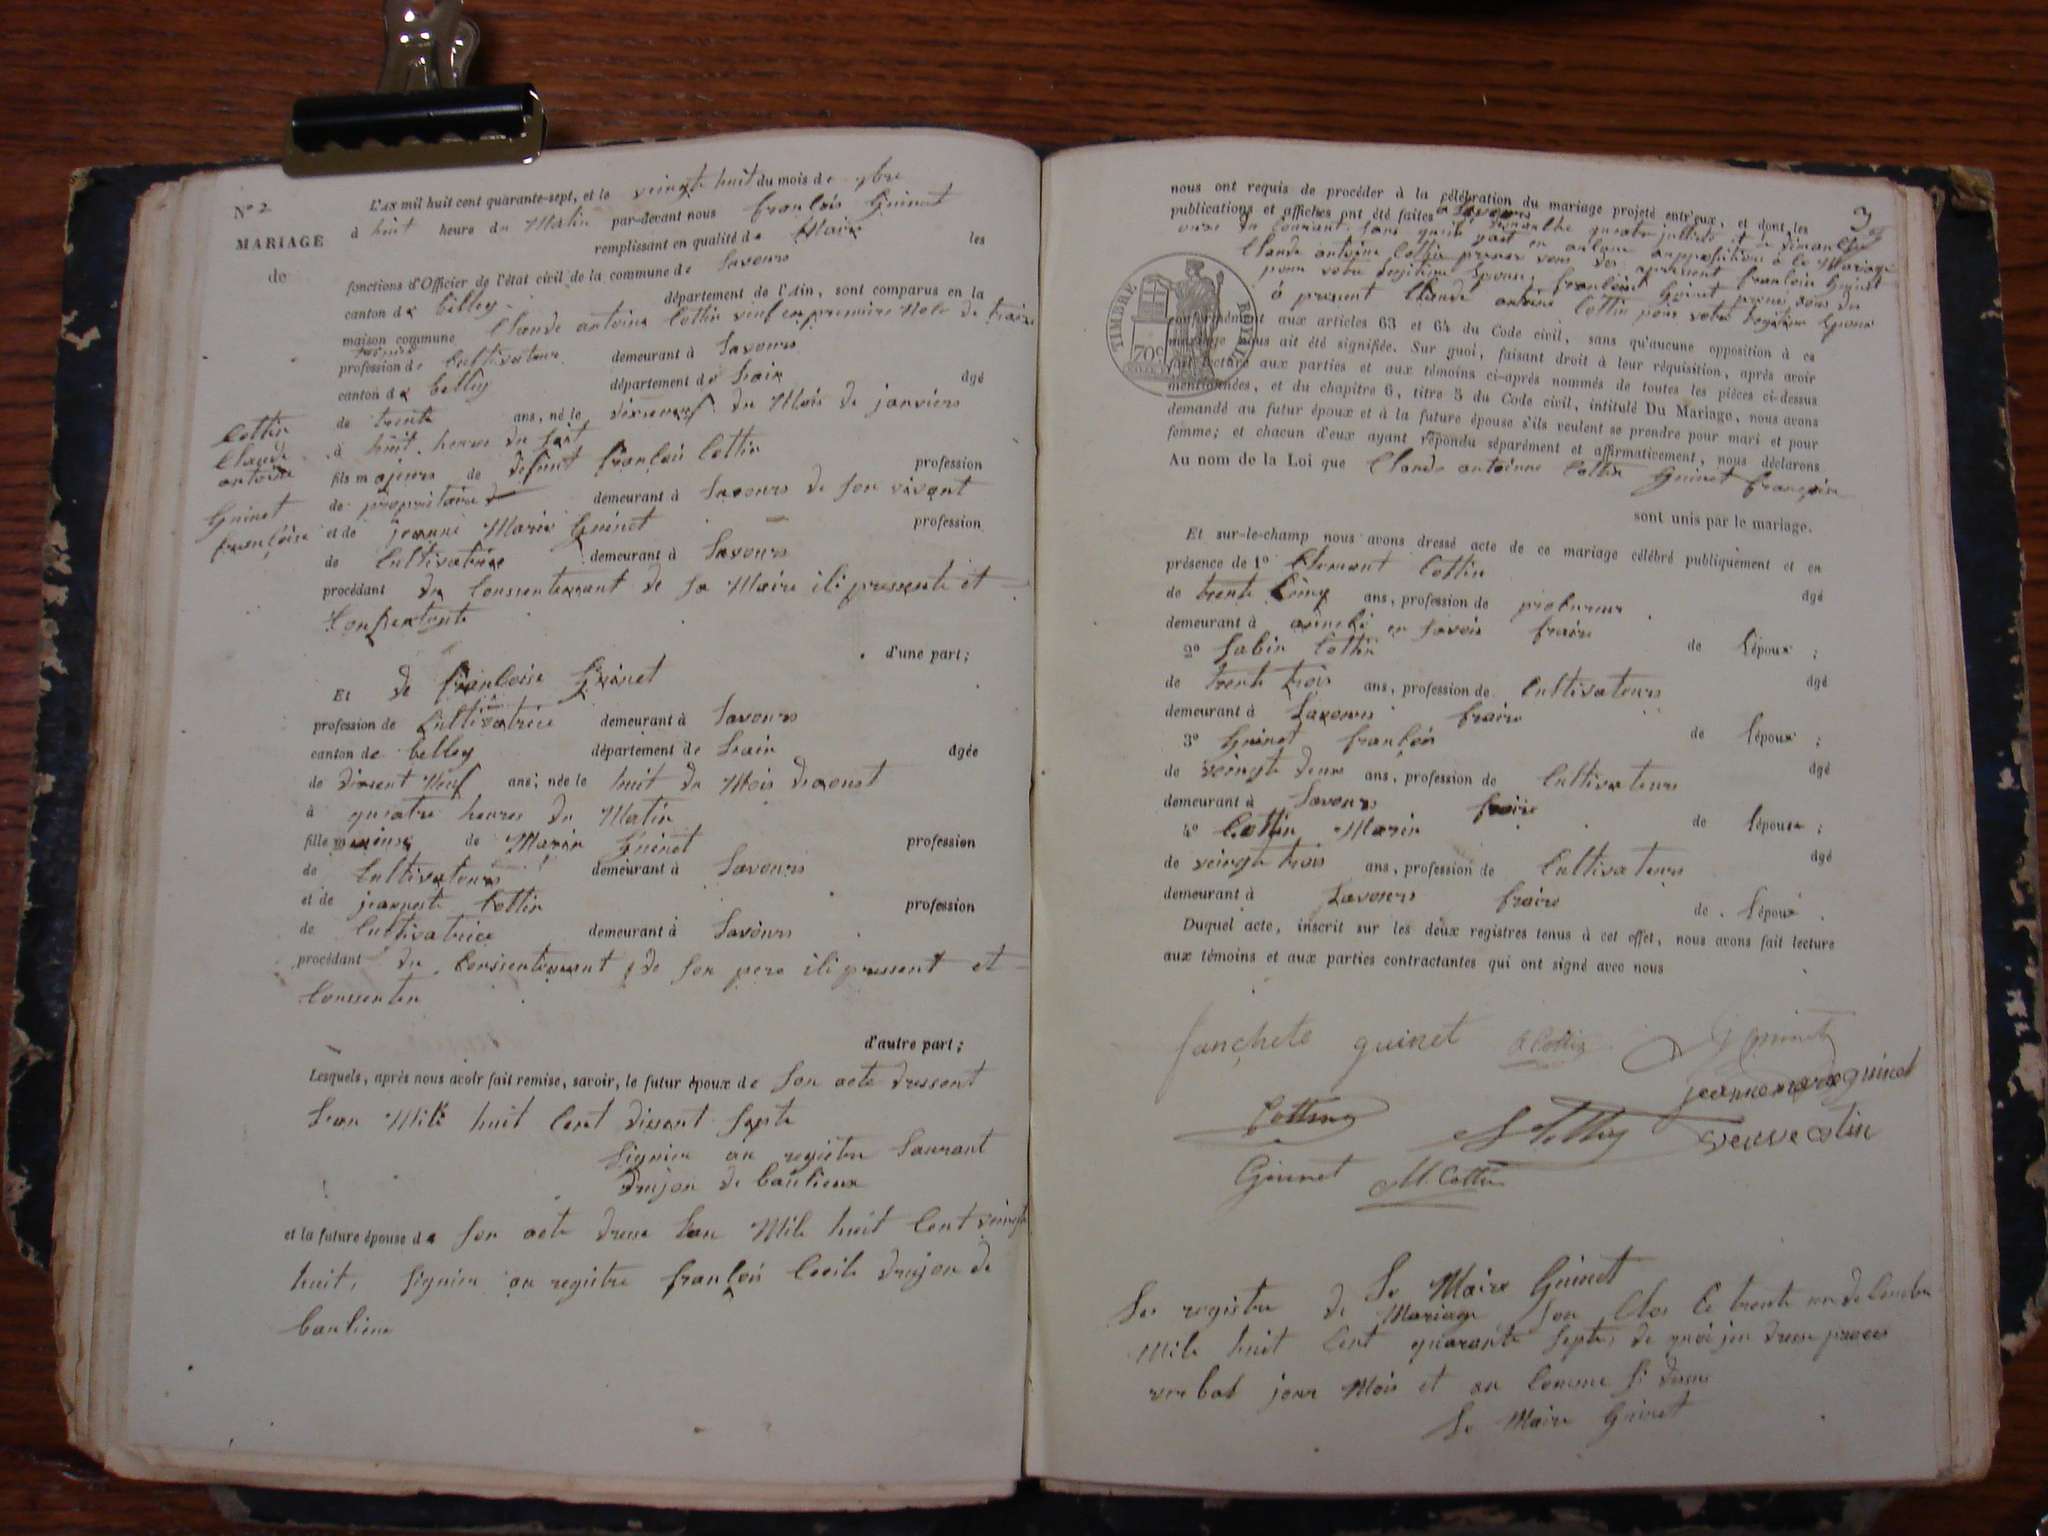 No 2
MARIAGE
de
Cottin
Claude
antoine
Guinet
francoise
L'AN mil huit cent quarante-sept, et le veingte huit du mois de
à huit heure du Matin par-devant nous francois Guinet
remplissant en qualité de Maire les
fonctions d'Officier de l'état civil de la commune de Savours
canton de belley département de l'Ain, sont comparus en la
maison commune Claude antoine Cottin
profession de Cultivateur demeurant à Savours
canton de belley département de Lain âgé
de trente ans, né le dixneuf du Mois de janviers
à huit heures du
fils majeurs de defunt francois Cottin profession
de propriétaire demeurant à Savours de son vivant
et de jeanne Marie Guinet profession
de Cultivatrice demeurant à Savours
procédant du Conssentemant de sa Maire ili pressente et
d'une part;
Et de francoise Guinet
profession de Cultivatrice demeurant à Savours
canton de belley département de Lain âgée
de dixent Neuf ans, née le huit du Mois
à quatre heures du Matin
fille mineure de Marin Guinet profession
de Cultivateurs demeurant à Savours
et de jeannete Cottin profession
de Cultivatrice demeurant à Savours
procédant du Conssentemant de son pere ili pressent et
Conssenten
d'autre part;
Lesquels, après nous avoir fait remise, savoir, le futur époux de Son acte dressent
Lan Mile huit Cent dissent septe
Signien au registre Laurant
drujon de baulieux
et la future épouse de Son acte Lan Mile huit Cent veingte
huit, Signien au registre francois Cecile drujon de
baulieux
nous ont requis de procéder à la célébration du mariage projeté entr'eux, et dont les
publications et affiches ont été faites à Savours
onze du Courant
Claude antoine Cottin
pour votre legitime Epouse, francoise Guinet
à present Claude antoine Cottin pour votre legitime Epoux
TIMBRE ROYAL
70c
conformément aux articles 63 et 64 du Code civil, sans qu'aucune opposition à ce
mariage nous ait été signifiée. Sur quoi, faisant droit à leur réquisition, après avoir
fait lecture aux parties et aux témoins ci-après nommés de toutes les pièces ci-dessus
mentionnées, et du chapitre 6, titre 5 du Code civil, intitulé Du Mariage, nous avons
demandé au futur époux et à la future épouse s'ils veulent se prendre pour mari et pour
femme; et chacun d'eux ayant répondu séparément et affirmativement, nous déclarons
Au nom de la Loi que Claude antoinne Cottin Guinet francoise
sont unis par le mariage.
Et sur-le-champ nous avons dressé acte de ce mariage célébré publiquement et en
présence de 1o Clemant Cottin âgé
de trente Cinq ans, profession de procureur
demeurant à en Savoie fraire de Lépoux ;
2o Sabin Cottin âgé
de trente trois ans, profession de Cultivateurs
demeurant à Savours fraire de Lépoux ;
3o Guinet francois âgé
de veingte deux ans, profession de Cultivateurs
demeurant à Savours fraire de Lépouse ;
4o Cottin Marin âgé
de veingte trois ans, profession de Cultivateurs
demeurant à Savours fraire de Lépoux .
Duquel acte, inscrit sur les deux registres tenus à cet effet, nous avons fait lecture
aux témoins et aux parties contractantes qui ont signé avec nous
fanchete guinet Cottin Guinet
jeannemarie guinet
Cottin veuve cotin
Guinet M. Cottin
Le Maire Guinet
Les registre de Mariage son Clos Ce trente un
Mile huit Cent quarante septe, de quoi jeu dresse proces
verbal jour Mois et an Comme
Le Maire Guinet